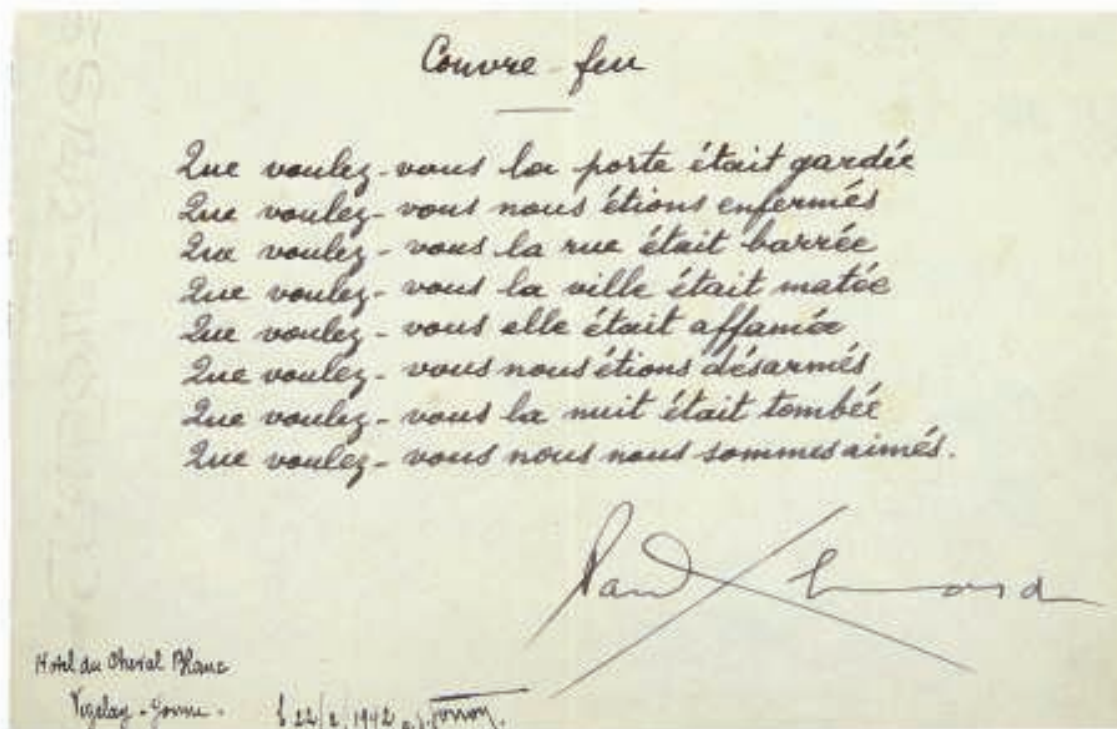 Couvre-feu
Que voulez-vous la porte était gardée
Que voulez-vous nous étions enfermés
Que voulez-vous la rue était barrée
Que voulez-vous la ville était matée
Que voulez-vous elle était affamée
Que voulez-vous nous étions désarmés
Que voulez-vous la nuit était tombée
Que voulez-vous nous nous sommes aimés.
Paul Eluard
Hotel du Cheval Blanc
Vezelay - Yonne -
22/2/1942